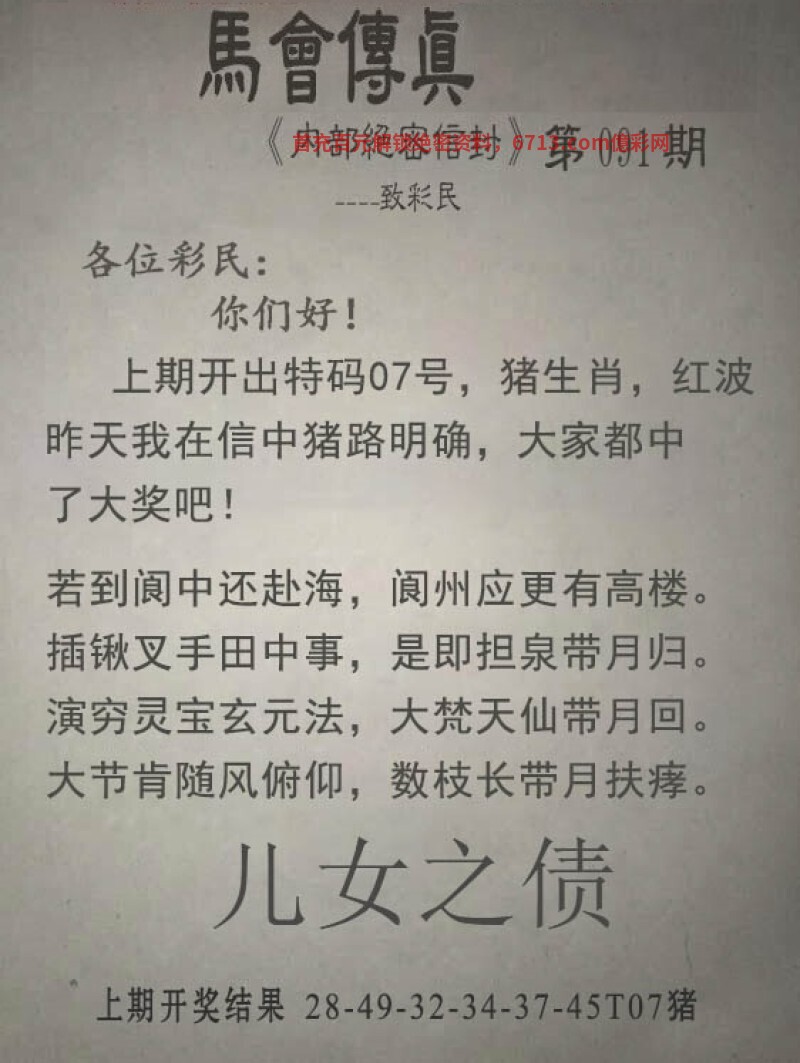 馬會傳真
《内部絕密信封》第091期
首充百元解锁绝密资料，6713.com億彩网
----致彩民
各位彩民：
你们好！
上期开出特码07号，猪生肖，红波
昨天我在信中猪路明确，大家都中
了大奖吧！
若到阆中还赴海，阆州应更有高楼。
插锹叉手田中事，是即担泉带月归。
演穷灵宝玄元法，大梵天仙带月回。
大节肯随风俯仰，数枝长带月扶瘆。
儿女之债
上期开奖结果 28-49-32-34-37-45T07猪